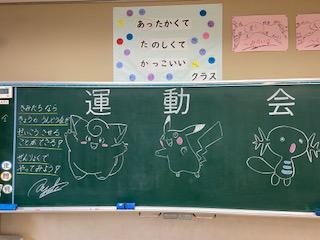 あったかくて
たのしくて
かっこいい
クラス
運動会
きみたちなら
きょうの うんどう会を
せいこう させる
ことができる?
ぜんりょくで
やってみよう?